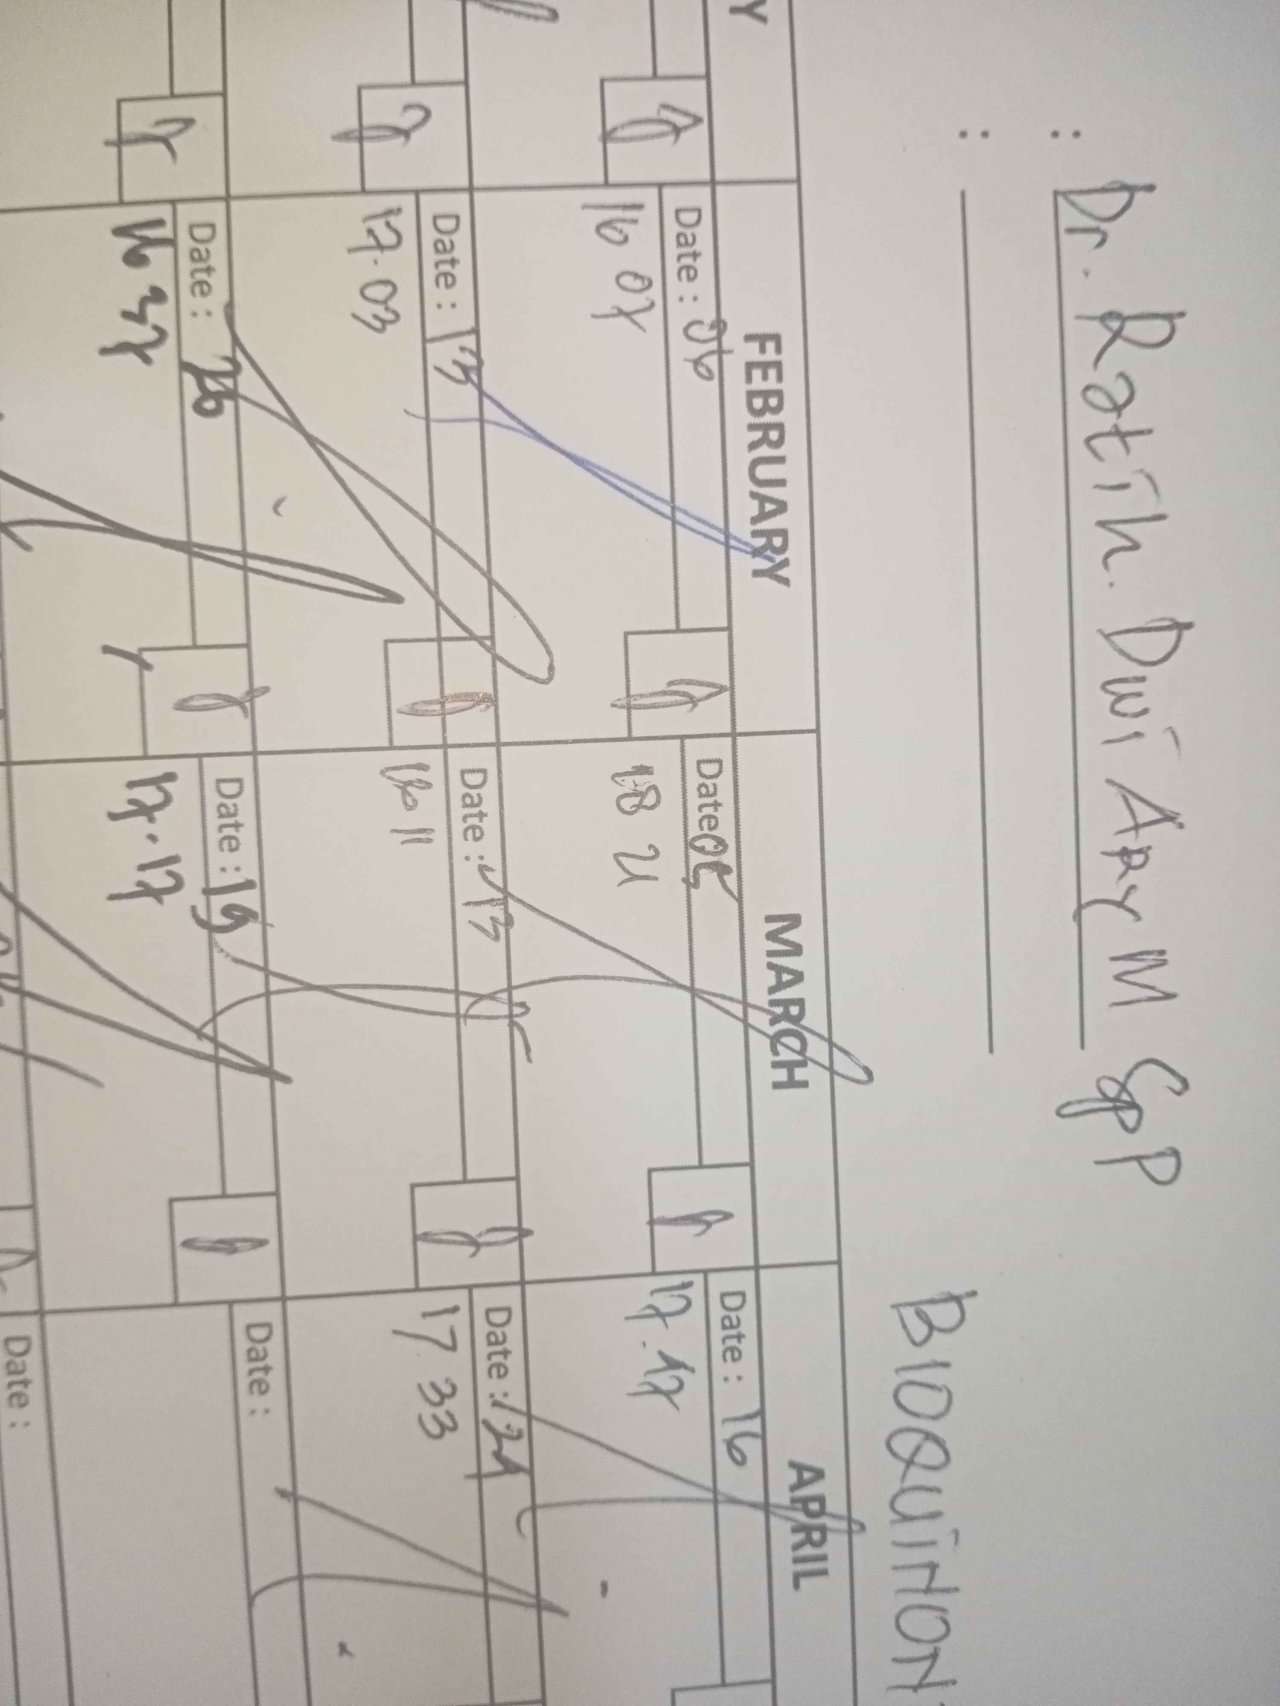 : Dr. Ratih. Dwi Ary M SpP
:
BIOQUINON
Y FEBRUARY MARCH APRIL
Date : 06 Date 05 Date : 16
16 07 18 21 17.17
Date : 13 Date : 13 Date : 24
17.03 16 11 17 33
Date : 26 Date : 19 Date :
16 37 17.17
Date :